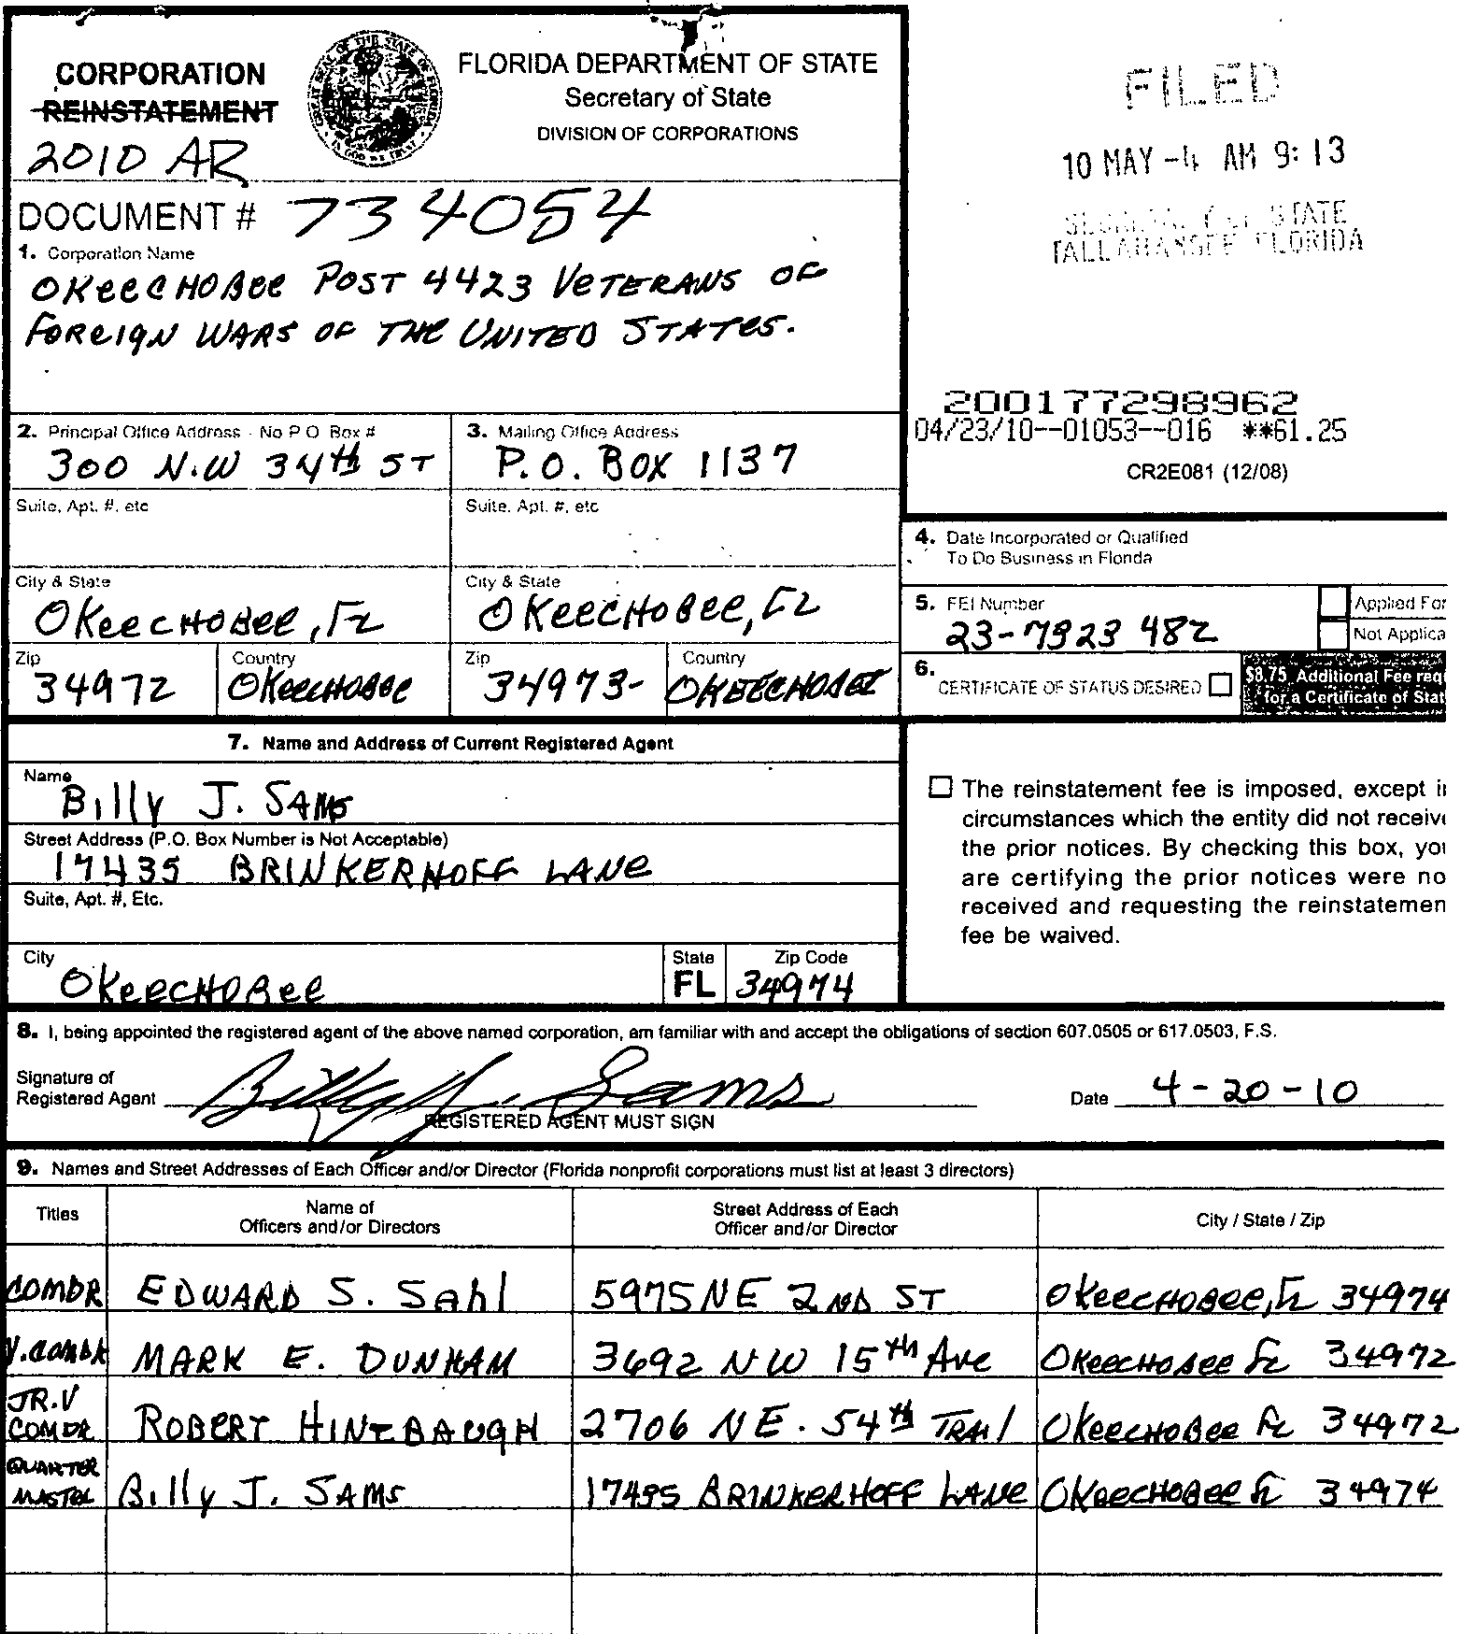 CORPORATION
REINSTATEMENT
2010 AR
FLORIDA DEPARTMENT OF STATE
Secretary of State
DIVISION OF CORPORATIONS
FILED
10 MAY -4 AM 9:13
SECRETARY OF STATE
TALLAHASSEE FLORIDA
DOCUMENT # 734054
1. Corporation Name
OKeeCHOBee POST 4423 VETERANS OF
FOREIGN WARS OF THE UNITED STATES.
200177298962
04/23/10--01053--016 **61.25
CR2E081 (12/08)
2. Principal Office Address - No P.O. Box #
300 N.W 34th ST
3. Mailing Office Address
P.O. BOX 1137
Suite, Apt. #, etc
Suite, Apt. #, etc
4. Date Incorporated or Qualified
To Do Business in Florida
City & State
OKeeCHOBee, FL
City & State
OKeeCHOBee, FL
5. FEI Number
23-7323 482
Applied For
Not Applica
Zip
34972
Country
OKeeCHOBee
Zip
34973-
Country
OKEECHOBEE
6. CERTIFICATE OF STATUS DESIRED
$8.75 Additional Fee req
for a Certificate of Stat
7. Name and Address of Current Registered Agent
Name
Billy J. SAMS
Street Address (P.O. Box Number is Not Acceptable)
17435 BRINKERHOFF LANE
Suite, Apt. #, Etc.
City
OKeeCHOBee
State
FL
Zip Code
34974
The reinstatement fee is imposed, except in
circumstances which the entity did not receive
the prior notices. By checking this box, you
are certifying the prior notices were no
received and requesting the reinstatemen
fee be waived.
8. I, being appointed the registered agent of the above named corporation, am familiar with and accept the obligations of section 607.0505 or 617.0503, F.S.
Signature of
Registered Agent Billy J. Sams
REGISTERED AGENT MUST SIGN
Date 4-20-10
9. Names and Street Addresses of Each Officer and/or Director (Florida nonprofit corporations must list at least 3 directors)
Titles
Name of
Officers and/or Directors
Street Address of Each
Officer and/or Director
City / State / Zip
COMDR EDWARD S. Sahl 5975 NE 2ND ST OKeeCHOBee, FL 34974
V.COMDR MARK E. DUNHAM 3692 NW 15th Ave OKeeCHOBee FL 34972
JR.V
COMDR ROBERT HINEBAUGH 2706 NE. 54th TRAIL OKeeCHOBee FL 34972
QUARTER
MASTER Billy J. SAMS 17435 BRINKERHOFF LANE OKeeCHOBee FL 34974